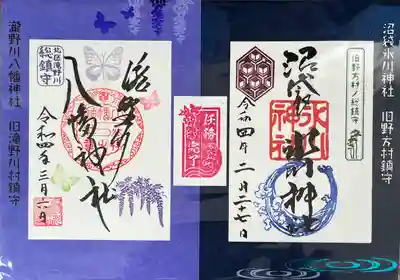 瀧野川八幡神社 旧滝野川村鎮守
北区滝野川
総鎮守
滝野川
八幡神社
令和四年三月一日
任務
完了
旧野方村ノ総鎮守
沼袋
氷川神社
令和四年二月二十七日
沼袋氷川神社 旧野方村鎮守